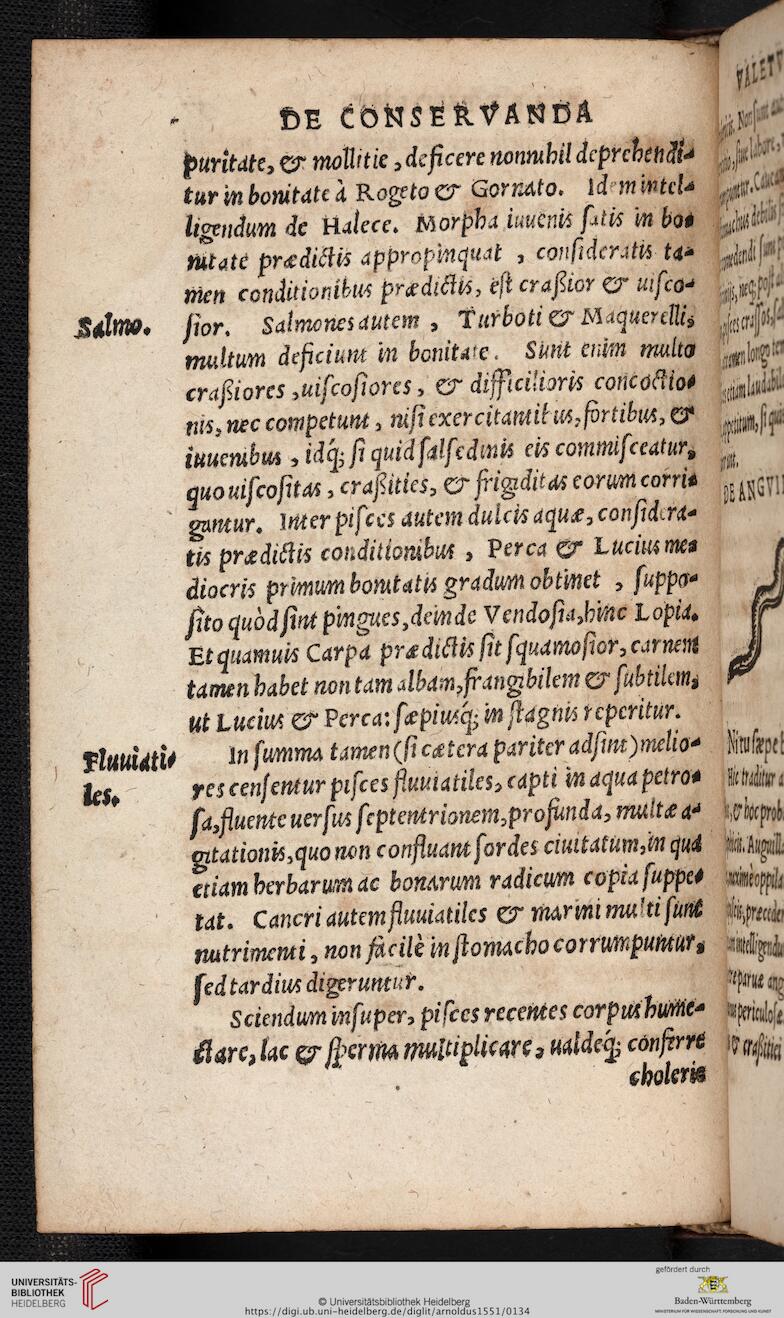 DE CONSERVANDA
puritate, & mollitie, deficere nonnihil deprehendi-
tur in bonitate à Rogeto & Gornato. Idem intel-
ligendum de Halece. Morpha iuuenis satis in bo-
nitate prædictis appropinquat, consideratis ta-
men conditionibus prædictis, est craßior & uisco-
Salmo.
sior. Salmones autem, Turboti & Maquerellis
multum deficiunt in bonitate. Sunt enim multo
craßiores, uiscosiores, & difficilioris concoctio-
nis, nec competunt, nisi exercitantibus, fortibus, &
iuuenibus, idq́; si quid salsedinis eis commisceatur,
quo uiscositas, craßities, & frigiditas eorum corri-
gantur. Inter pisces autem dulcis aquæ, considera-
tis prædictis conditionibus, Perca & Lucius me-
diocris primum bonitatis gradum obtinet, suppo-
sito quòd sint pingues, deinde Vendosia, hinc Lopia.
Et quamuis Carpa prædictis sit squamosior, carnem
tamen habet non tam albam, frangibilem & subtilem,
ut Lucius & Perca: sæpiusq́; in stagnis reperitur.
Fluuiati-
les.
In summa tamen (si cætera pariter adsint) melio-
res censentur pisces fluuiatiles, capti in aqua petro-
sa, fluente uersus septentrionem, profunda, multæ a-
gitationis, quo non confluant sordes ciuitatum, in qua
etiam herbarum ac bonarum radicum copia suppe-
tat. Cancri autem fluuiatiles & marini multi sunt
nutrimenti, non facilè in stomacho corrumpuntur,
sed tardius digeruntur.
Sciendum insuper, pisces recentes corpus hume-
ctare, lac & sperma multiplicare, ualdeq́; conferre
choleris
VALET
DE ANGVI
UNIVERSITÄTS-
BIBLIOTHEK
HEIDELBERG
© Universitätsbibliothek Heidelberg
https://digi.ub.uni-heidelberg.de/diglit/arnoldus1551/0134
gefördert durch
Baden-Württemberg
MINISTERIUM FÜR WISSENSCHAFT, FORSCHUNG UND KUNST